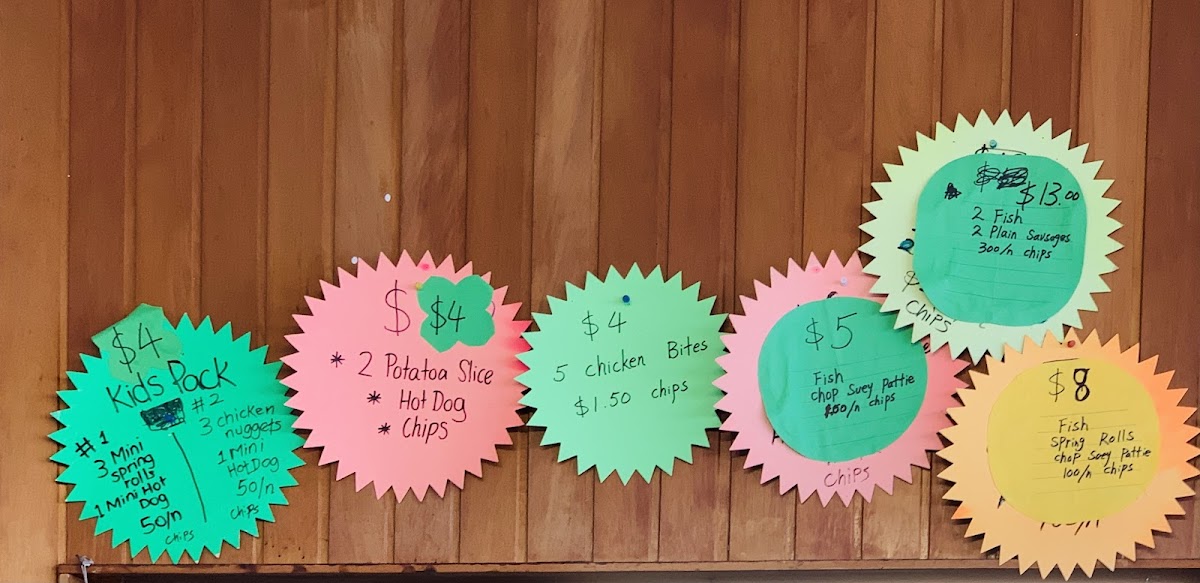 $4
Kids Pack
#1
3 Mini
spring
rolls
1 Mini Hot
Dog
50/n
chips
#2
3 chicken
nuggets
1 Mini
HotDog
50/n
chips
$ $4
* 2 Potatoa Slice
* Hot Dog
* Chips
$4
5 chicken Bites
$1.50 chips
$5
Fish
chop Suey Pattie
chips
chips
$13.00
2 Fish
2 Plain Sausages
300/n chips
chips
$8
Fish
Spring Rolls
chop Suey Pattie
100/n chips